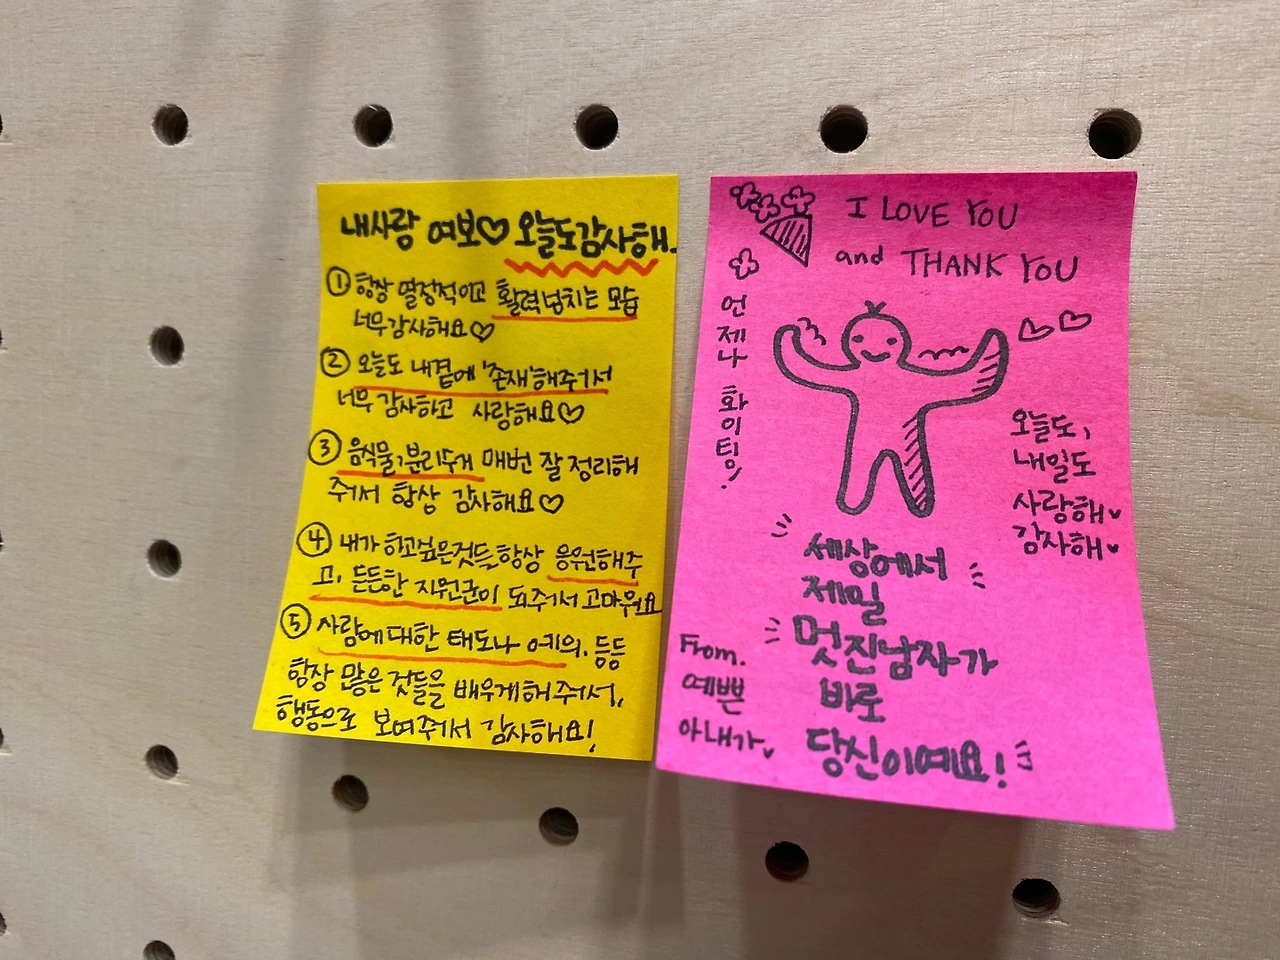 내사랑 여보♡ 오늘도감사해.
① 항상 열정적이고 활력넘치는 모습
너무감사해요♡
② 오늘도 내곁에 '존재'해주어서
너무 감사하고 사랑해요♡
③ 음식물, 분리수거 매번 잘 정리해
주어서 항상 감사해요♡
④ 내가 하고싶은것듯, 항상 응원해주
고, 든든한 지원군이 되주어서 고마워요
⑤ 사람에대한 태도나 예의. 등등
항상 많은 것들을 배우게해주어서,
행동으로 보여주어서 감사해요!
I LOVE YOU
and THANK YOU
언제나 화이팅!
오늘도,
내일도
사랑해♥
감사해♥
세상에서
제일
멋진남자가
바로
당신이예요!
From.
예쁜
아내가♥